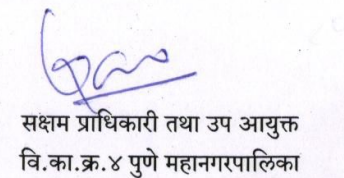 सक्षम प्राधिकारी तथा उप आयुक्त
वि.का.क्र.४ पुणे महानगरपालिका